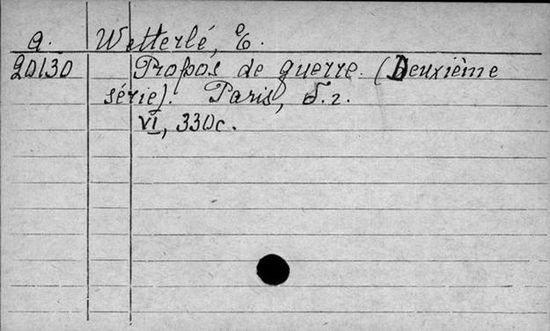 a. Wetterlé, E.
20130 Propos de guerre. (Deuxième
série). Paris, б.г.
VI, 330с.